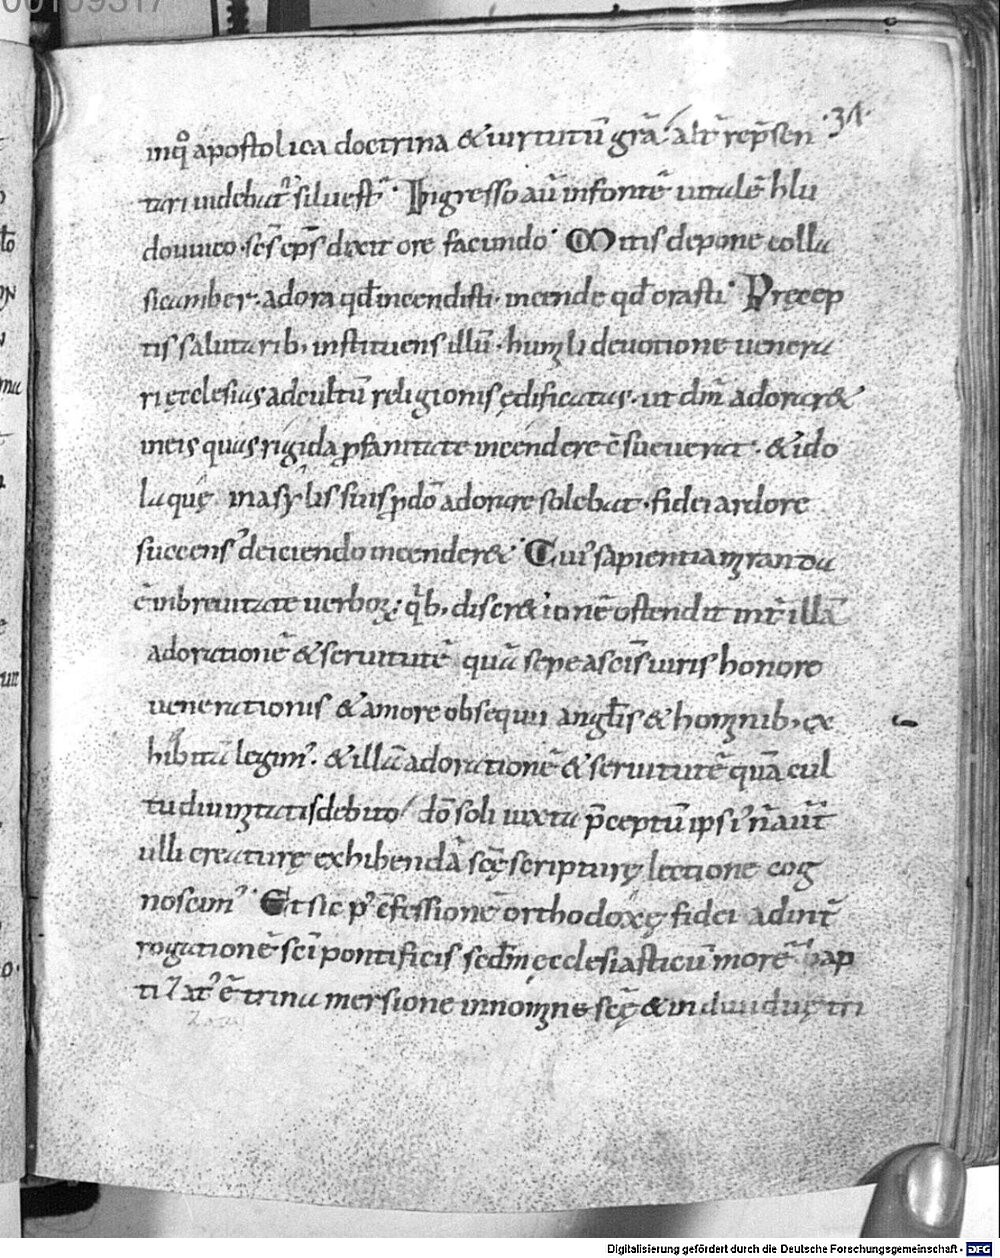 00109317
·34·
inq̊ apostolica doctrina & uirtutū grā alt̄ rep̄sen
tari uidebat᷑ siluest᷑· Ingresso aū in fontē uitalē hlu
douuico· sc̄s ep̄s dixit ore facundo· Mitis depone colla
sicamber· adora qđ incendisti· incende qđ orasti· Precep
tis salutarib; instituens illū· humili deuotione uenera
ri ęcclesias ad cultū religionis ędificatas· ut dm̄ adorar&
in eis quas rigida ꝓfanitate incendere c̄sueuerat· & ido
la quę in asylis suis ꝓ dō adorare solebat· fidei ardore
succens᷒ deiciendo incender&· Cui᷒ sapientia miranda
ē in breuitate uerboꝝ· qͥb; discr&ionē ostendit int̄ illā
adorationē & seruitutē quā sepe a sc̄is uiris honore
uenerationis & amore obsequii angłis & hominib; ex
hibitā legim᷒· & illā adorationē & seruitutē quā cul
tu diuinitatis debito dō soli iuxta p̄ceptū ipsi᷒ n̄ aūt
ulli creaturę exhibendā scę̄ scripturę lectione cog
noscim᷒· Et sic p᷒ c̄fessionē orthodoxę fidei ad int̄
rogationē sc̄i pontificis scđm ęcclesiasticū morē bap
tizat᷒ ē trina mersione in nomine scę̄ & indiuiduę tri
Digitalisierung gefördert durch die Deutsche Forschungsgemeinschaft - DFG